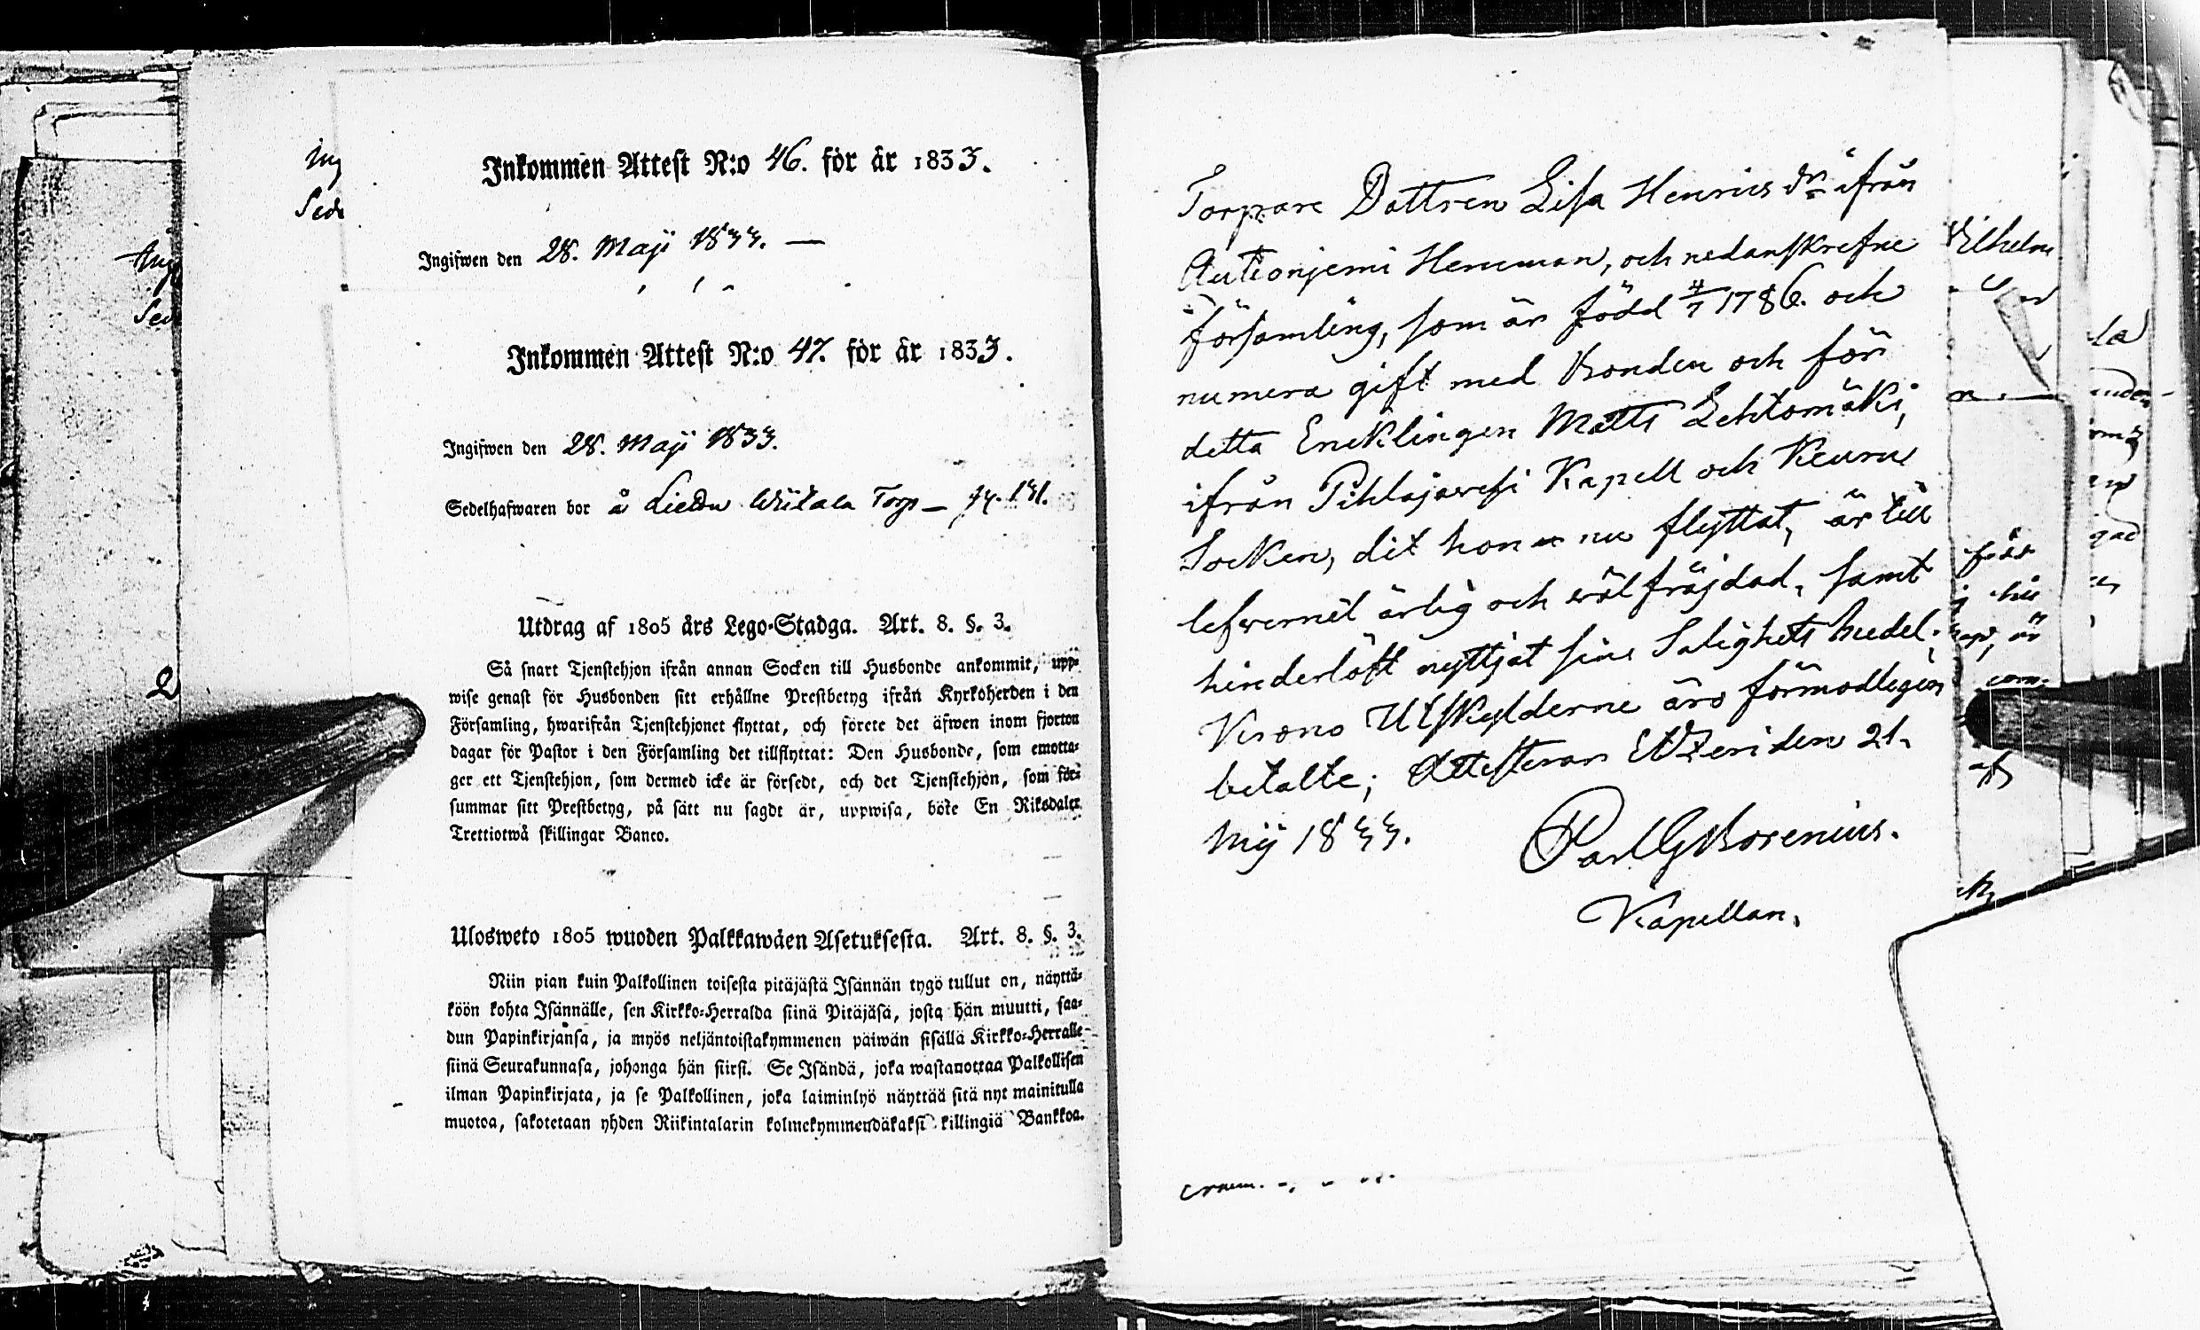 Inkommen Attest N:o 46. för år 1833.
Ingifwen den 28. Maji 1833. —
Inkommen Attest N:o 47. för år 1833.
Ingifwen den 28. Maji 1833.
Sedelhafwaren bor å Torp —
Utdrag af 1805 års Lego-Stadga. Art. 8. §. 3.
Så snart Tjenstehjon ifrån annan Socken till Husbonde ankommit, upp-
wise genast för Husbonden sitt erhållne Prestbetyg ifrån Kyrkoherden i den
Församling, hwarifrån Tjenstehjonet flyttat, och förete det äfwen inom fjorton
dagar för Pastor i den Församling det tillflyttat: Den Husbonde, som emotta-
ger ett Tjenstehjon, som dermed icke är försedt, och det Tjenstehjon, som för-
summar sitt Prestbetyg, på sätt nu sagdt är, uppwisa, böte En Riksdaler
Trettiotwå skillingar Banco.
Ulosweto 1805 wuoden Palkkawäen Asetuksesta. Art. 8. §. 3.
Niin pian kuin Palkollinen toisesta pitäjästä Isännän tygö tullut on, näyttä-
köön kohta Isännälle, sen Kirkko-Herralda siinä Pitäjäsä, josta hän muutti, saa-
dun Papinkirjansa, ja myös neljäntoistakymmenen päiwän sisällä Kirkko-Herralle
siinä Seurakunnasa, johonga hän siirsi. Se Isändä, joka wastanottaa Palkollisen
ilman Papinkirjata, ja se Palkollinen, joka laiminlyö näyttää sitä nyt mainitulla
muotoa, sakotetaan yhden Riikintalarin kolmekymmendäkaksi killingiä Bankkoa.
Torpare Dottren Lisa Henricsdr ifrån
Autionjemi Hemman, och nedanskrefne
församling, som är född 4/7 1786. och
numera gift med Bonden och för
detta Encklingen Matts Lehtomäki,
ifrån Pihlajawesi Kapell och Keuru
Socken, dit hon nu flyttat, är till
lefwernet ärlig och wälfräjdad, samt
hinderlöst nyttjat sine Salighets medel;
Krono Utskylderne äro förmodligen
betalte; Attesterar Etzeri den 21.
Maji 1833. Carl G Borenius.
Kapellan.